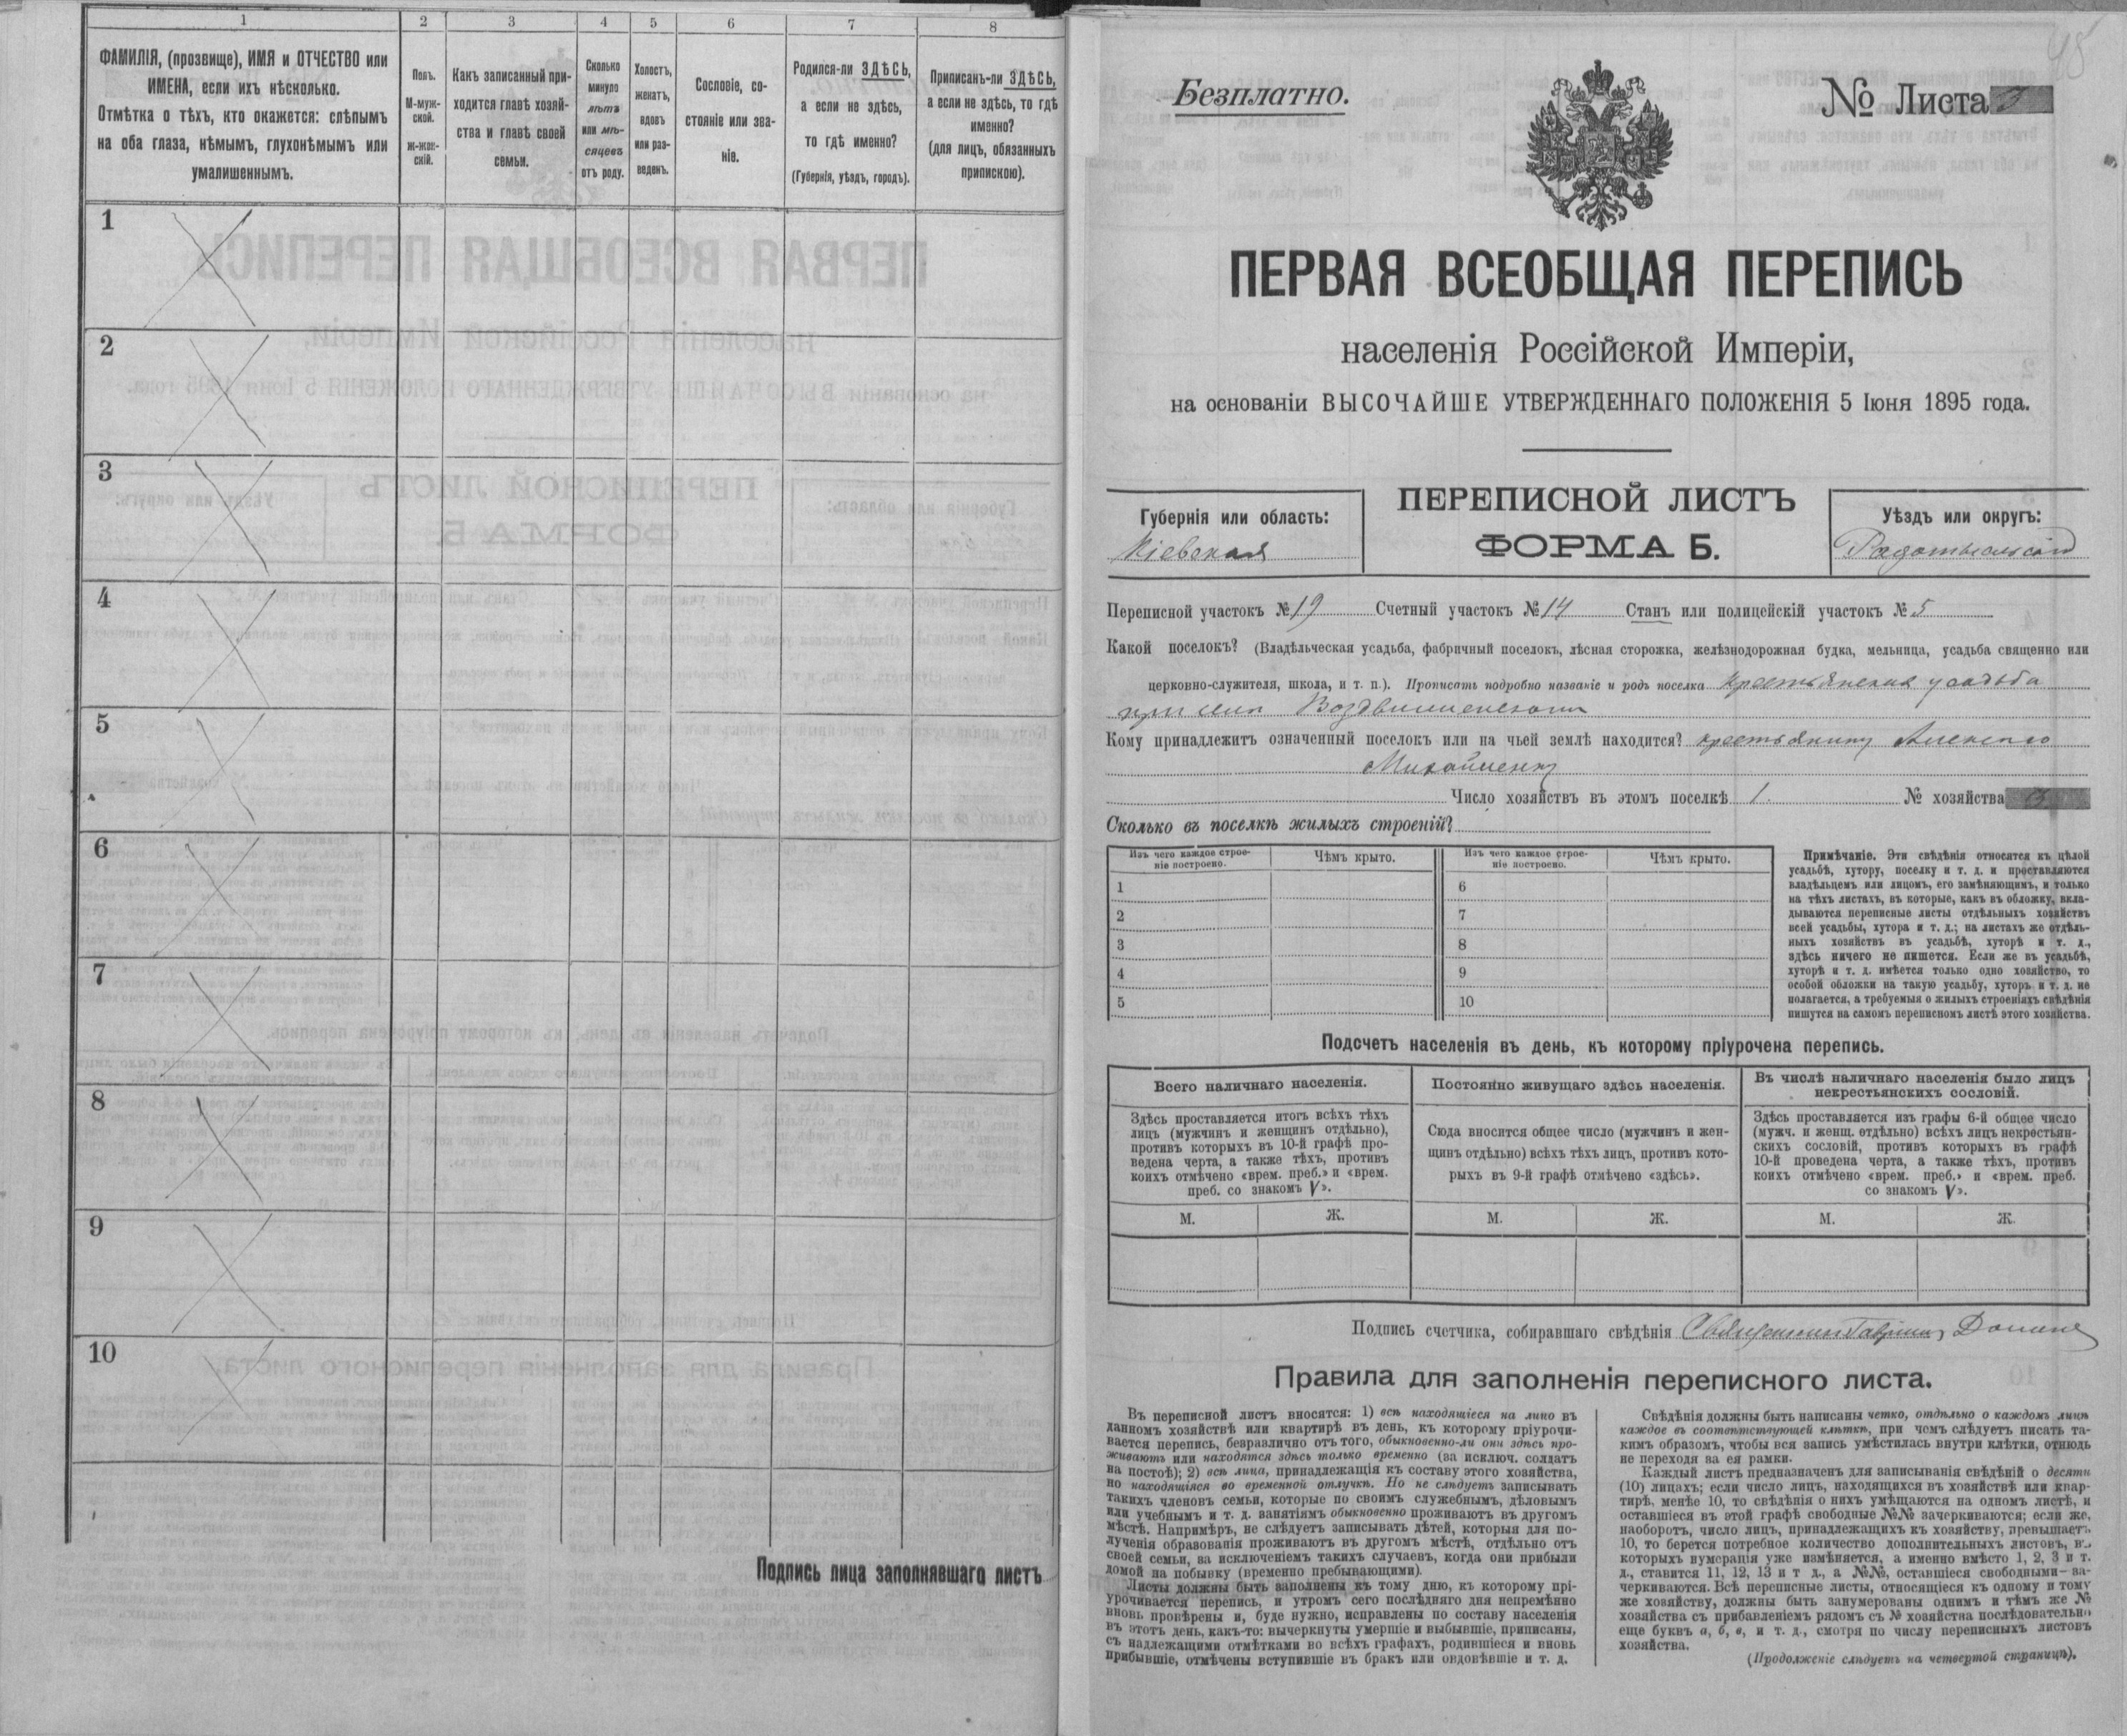 1 2 3 4 5 6 7 8
ФАМИЛІЯ, (прозвище), ИМЯ и ОТЧЕСТВО или
ИМЕНА, если ихъ нѣсколько.
Отмѣтка о тѣхъ, кто окажется: слѣпымъ
на оба глаза, нѣмымъ, глухонѣмымъ или
умалишеннымъ.
Полъ.
М-муж-
ской.
ж-жен-
скій.
Какъ записанный при-
ходится главѣ хозяй-
ства и главѣ своей
семьи.
Сколько
минуло
лѣтъ
или мѣ-
сяцевъ
отъ роду.
Холостъ,
женатъ,
вдовъ
или раз-
веденъ.
Сословіе, со-
стояніе или зва-
ніе.
Родился-ли ЗДѢСЬ,
а если не здѣсь,
то гдѣ именно?
(Губернія, уѣздъ, городъ).
Приписанъ-ли ЗДѢСЬ,
а если не здѣсь, то гдѣ
именно?
(для лицъ, обязанныхъ
припискою).
1
2
3
4
5
6
7
8
9
10
Подпись лица заполнявшаго листъ
48
Безплатно.
№ Листа 3
ПЕРВАЯ ВСЕОБЩАЯ ПЕРЕПИСЬ
населенія Россійской Имперіи,
на основаніи ВЫСОЧАЙШЕ УТВЕРЖДЕННАГО ПОЛОЖЕНІЯ 5 Іюня 1895 года.
Губернія или область:
Кіевская
ПЕРЕПИСНОЙ ЛИСТЪ
ФОРМА Б.
Уѣздъ или округъ:
Радомысльскій
Переписной участокъ № 19 Счетный участокъ № 14 Станъ или полицейскій участокъ № 5
Какой поселокъ? (Владѣльческая усадьба, фабричный поселокъ, лѣсная сторожка, желѣзнодорожная будка, мельница, усадьба священно или
церковно-служителя, школа, и т. п.). Прописать подробно названіе и родъ поселка крестьянская усадьба
при Воздвиженскомъ
Кому принадлежитъ означенный поселокъ или на чьей землѣ находится? крестьянину Алексѣю
Михайленку
Число хозяйствъ въ этомъ поселкѣ 1. № хозяйства 3
Сколько въ поселкѣ жилыхъ строеній?
Изъ чего каждое строе-
ніе построено.
Чѣмъ крыто.
Изъ чего каждое строе-
ніе построено.
Чѣмъ крыто.
1 6
2 7
3 8
4 9
5 10
Примѣчаніе. Эти свѣдѣнія относятся къ цѣлой
усадьбѣ, хутору, поселку и т. д. и проставляются
владѣльцемъ или лицомъ, его замѣняющимъ, и только
на тѣхъ листахъ, въ которые, какъ въ обложку, вкла-
дываются переписные листы отдѣльныхъ хозяйствъ
всей усадьбы, хутора и т. д.; на листахъ же отдѣль-
ныхъ хозяйствъ въ усадьбѣ, хуторѣ и т. д.,
здѣсь ничего не пишется. Если же въ усадьбѣ,
хуторѣ и т. д. имѣется только одно хозяйство, то
особой обложки на такую усадьбу, хуторъ и т. д. не
полагается, а требуемыя о жилыхъ строеніяхъ свѣдѣнія
пишутся на самомъ переписномъ листѣ этого хозяйства.
Подсчетъ населенія въ день, къ которому пріурочена перепись.
Всего наличнаго населенія.
Здѣсь проставляется итогъ всѣхъ тѣхъ
лицъ (мужчинъ и женщинъ отдѣльно),
противъ которыхъ въ 10-й графѣ про-
ведена черта, а также тѣхъ, противъ
коихъ отмѣчено «врем. преб.» и «врем.
преб. со знакомъ V».
Постоянно живущаго здѣсь населенія.
Сюда вносится общее число (мужчинъ и жен-
щинъ отдѣльно) всѣхъ тѣхъ лицъ, противъ кото-
рыхъ въ 9-й графѣ отмѣчено «здѣсь».
Въ числѣ наличнаго населенія было лицъ
некрестьянскихъ сословій.
Здѣсь проставляется изъ графы 6-й общее число
(мужч. и женщ. отдѣльно) всѣхъ лицъ некрестьян-
скихъ сословій, противъ которыхъ въ графѣ
10-й проведена черта, а также тѣхъ, противъ
коихъ отмѣчено «врем. преб.» и «врем. преб.
со знакомъ V».
М. Ж. М. Ж. М. Ж.
Подпись счетчика, собиравшаго свѣдѣнія Священникъ Гавріилъ
Правила для заполненія переписного листа.
Въ переписной листъ вносятся: 1) всѣ находящіеся на лицо въ
данномъ хозяйствѣ или квартирѣ въ день, къ которому пріурочи-
вается перепись, безразлично отъ того, обыкновенно-ли они здѣсь про-
живаютъ или находятся здѣсь только временно (за исключ. солдатъ
на постоѣ); 2) всѣ лица, принадлежащія къ составу этого хозяйства,
но находящіяся во временной отлучкѣ. Но не слѣдуетъ записывать
такихъ членовъ семьи, которые по своимъ служебнымъ, дѣловымъ
или учебнымъ и т. д. занятіямъ обыкновенно проживаютъ въ другомъ
мѣстѣ. Напримѣръ, не слѣдуетъ записывать дѣтей, которыя для по-
лученія образованія проживаютъ въ другомъ мѣстѣ, отдѣльно отъ
своей семьи, за исключеніемъ такихъ случаевъ, когда они прибыли
домой на побывку (временно пребывающими).
Листы должны быть заполнены къ тому дню, къ которому прі-
урочивается перепись, и утромъ сего послѣдняго дня непремѣнно
вновь провѣрены и, буде нужно, исправлены по составу населенія
въ этотъ день, какъ-то: вычеркнуты умершіе и выбывшіе, приписаны,
съ надлежащими отмѣтками во всѣхъ графахъ, родившіеся и вновь
прибывшіе, отмѣчены вступившіе въ бракъ или овдовѣвшіе и т. д.
Свѣдѣнія должны быть написаны четко, отдѣльно о каждомъ лицѣ
каждое въ соотвѣтствующей клѣткѣ, при чемъ слѣдуетъ писать та-
кимъ образомъ, чтобы вся запись умѣстилась внутри клѣтки, отнюдь
не переходя за ея рамки.
Каждый листъ предназначенъ для записыванія свѣдѣній о десяти
(10) лицахъ; если число лицъ, находящихся въ хозяйствѣ или квар-
тирѣ, менѣе 10, то свѣдѣнія о нихъ умѣщаются на одномъ листѣ, и
оставшіеся въ этой графѣ свободные №№ зачеркиваются; если же,
наоборотъ, число лицъ, принадлежащихъ къ хозяйству, превышаетъ
10, то берется потребное количество дополнительныхъ листовъ, въ
которыхъ нумерація уже измѣняется, а именно вмѣсто 1, 2, 3 и т.
д., ставится 11, 12, 13 и т д., а №№, оставшіеся свободными—за-
черкиваются. Всѣ переписные листы, относящіеся къ одному и тому
же хозяйству, должны быть занумерованы однимъ и тѣмъ же №
хозяйства съ прибавленіемъ рядомъ съ № хозяйства послѣдовательно
еще буквъ а, б, в, и т. д., смотря по числу переписныхъ листовъ
хозяйства.
(Продолженіе слѣдуетъ на четвертой страницѣ).